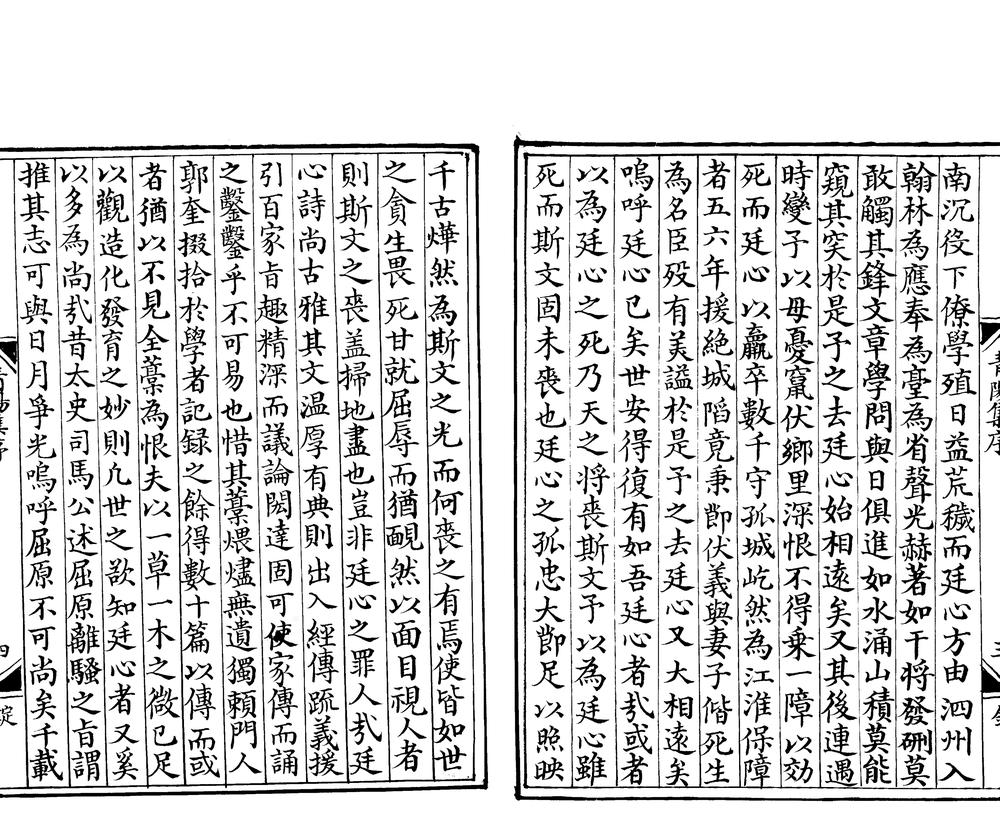 南沉伇下僚學殖日益荒穢而廷心方由泗州入
翰林為應奉為臺為省聲光赫著如干將發硎莫
敢觸其鋒文章學問與日俱進如水涌山積莫能
窺其突於是子之去廷心始相遠矣又其後連遇
時變予以母憂竄伏鄉里深恨不得乗一障以効
死而廷心以羸卒數千守孤城屹然為江淮保障
者五六年援絶城䧟竟秉節伏義與妻子偕死生
為名臣殁有美謚於是予之去廷心又大相遠矣
嗚呼廷心已矣世安得復有如吾廷心者㢤或者
以為廷心之死乃天之將喪斯文予以為廷心雖
死而斯文固未喪也廷心之孤忠大節足以照映
千古燁然為斯文之光而何喪之有焉使皆如世
之貪生畏死甘就屈辱而猶靦然以面目視人者
則斯文之喪盖掃地盡也豈非廷心之罪人㢤廷
心詩尚古雅其文温厚有典則出入經傳䟽義援
引百家㫖趣精深而議論閎達固可使家傳而誦
之鑿鑿乎不可易也惜其藁煨燼無遺獨頼門人
郭奎掇拾於學者記録之餘得數十篇以傳而或
者猶以不見全藁為恨夫以一草一木之微已足
以觀造化發育之妙則凢世之欲知廷心者又奚
以多為尚㢤昔太史司馬公述屈原離騷之㫖謂
推其志可與日月爭光嗚呼屈原不可尚矣千載